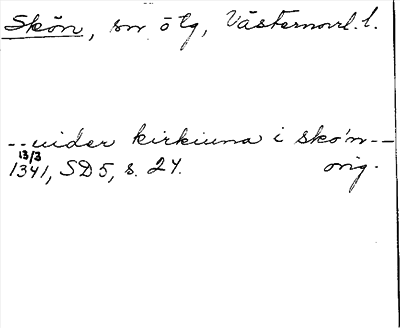 Skön, sn o lg, Västernorrl. l.
-- uider kirkiuna i skø'n --
13/3
1341, SD 5, s. 24. orig.